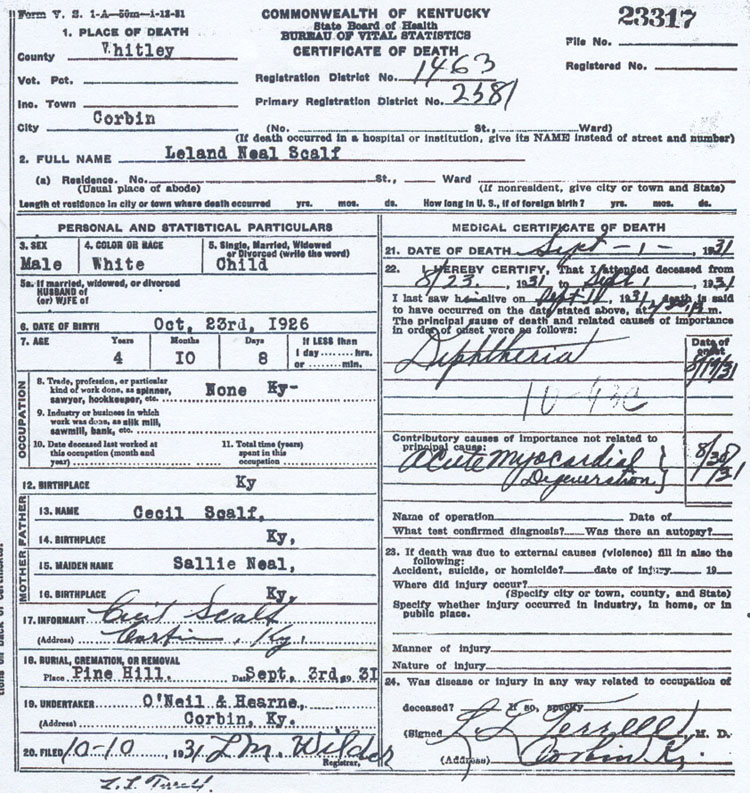 Form V. S. 1-A—50m—1-12-31
COMMONWEALTH OF KENTUCKY
State Board of Health
BUREAU OF VITAL STATISTICS
CERTIFICATE OF DEATH
23317
File No.
Registered No.
1. PLACE OF DEATH
County Whitley
Vot. Pct.
Inc. Town
City Corbin
Registration District No. 1463
Primary Registration District No. 2381
(No. St., Ward)
(If death occurred in a hospital or institution, give its NAME instead of street and number)
2. FULL NAME Leland Neal Scalf
(a) Residence. No. St., Ward
(Usual place of abode) (If nonresident, give city or town and State)
Length of residence in city or town where death occurred yrs. mos. ds. How long in U. S., if of foreign birth? yrs. mos. ds.
PERSONAL AND STATISTICAL PARTICULARS
3. SEX
Male
4. COLOR OR RACE
White
5. Single, Married, Widowed
or Divorced (write the word)
Child
5a. If married, widowed, or divorced
HUSBAND of
(or) WIFE of
6. DATE OF BIRTH Oct, 23rd, 1926
7. AGE Years Months Days If LESS than
4 10 8 1 day hrs.
or min.
OCCUPATION
8. Trade, profession, or particular
kind of work done, as spinner,
sawyer, bookkeeper, etc. None Ky-
9. Industry or business in which
work was done, as silk mill,
sawmill, bank, etc.
10. Date deceased last worked at
this occupation (month and
year)
11. Total time (years)
spent in this
occupation
12. BIRTHPLACE Ky
FATHER
13. NAME Cecil Scalf,
14. BIRTHPLACE Ky,
MOTHER
15. MAIDEN NAME Sallie Neal,
16. BIRTHPLACE Ky,
17. INFORMANT Cecil Scalf
(Address) Corbin, Ky.
18. BURIAL, CREMATION, OR REMOVAL
Place Pine Hill. Date Sept, 3rd, 1931
19. UNDERTAKER O'Neil & Hearne,
(Address) Corbin, Ky.
20. FILED 10-10, 1931 L M. Wilder
Registrar.
MEDICAL CERTIFICATE OF DEATH
21. DATE OF DEATH Sept - 1 - , 1931
22. I HEREBY CERTIFY, That I attended deceased from
8/23, 1931 to Sept 1, 1931
I last saw him alive on Sept 1, 1931, death is said
to have occurred on the date stated above, at m.
The principal cause of death and related causes of importance
in order of onset were as follows:
Date of
onset
Diphtheria 8/19/31
10
Contributory causes of importance not related to
principal cause:
Acute Myocardial
Degeneration
8/30/31
Name of operation Date of
What test confirmed diagnosis? Was there an autopsy?
23. If death was due to external causes (violence) fill in also the
following:
Accident, suicide, or homicide? date of injury 19
Where did injury occur?
(Specify city or town, county, and State)
Specify whether injury occurred in industry, in home, or in
public place.
Manner of injury
Nature of injury
24. Was disease or injury in any way related to occupation of
deceased? If so, specify
(Signed L L Terrell, M. D.
(Address) Corbin Ky.